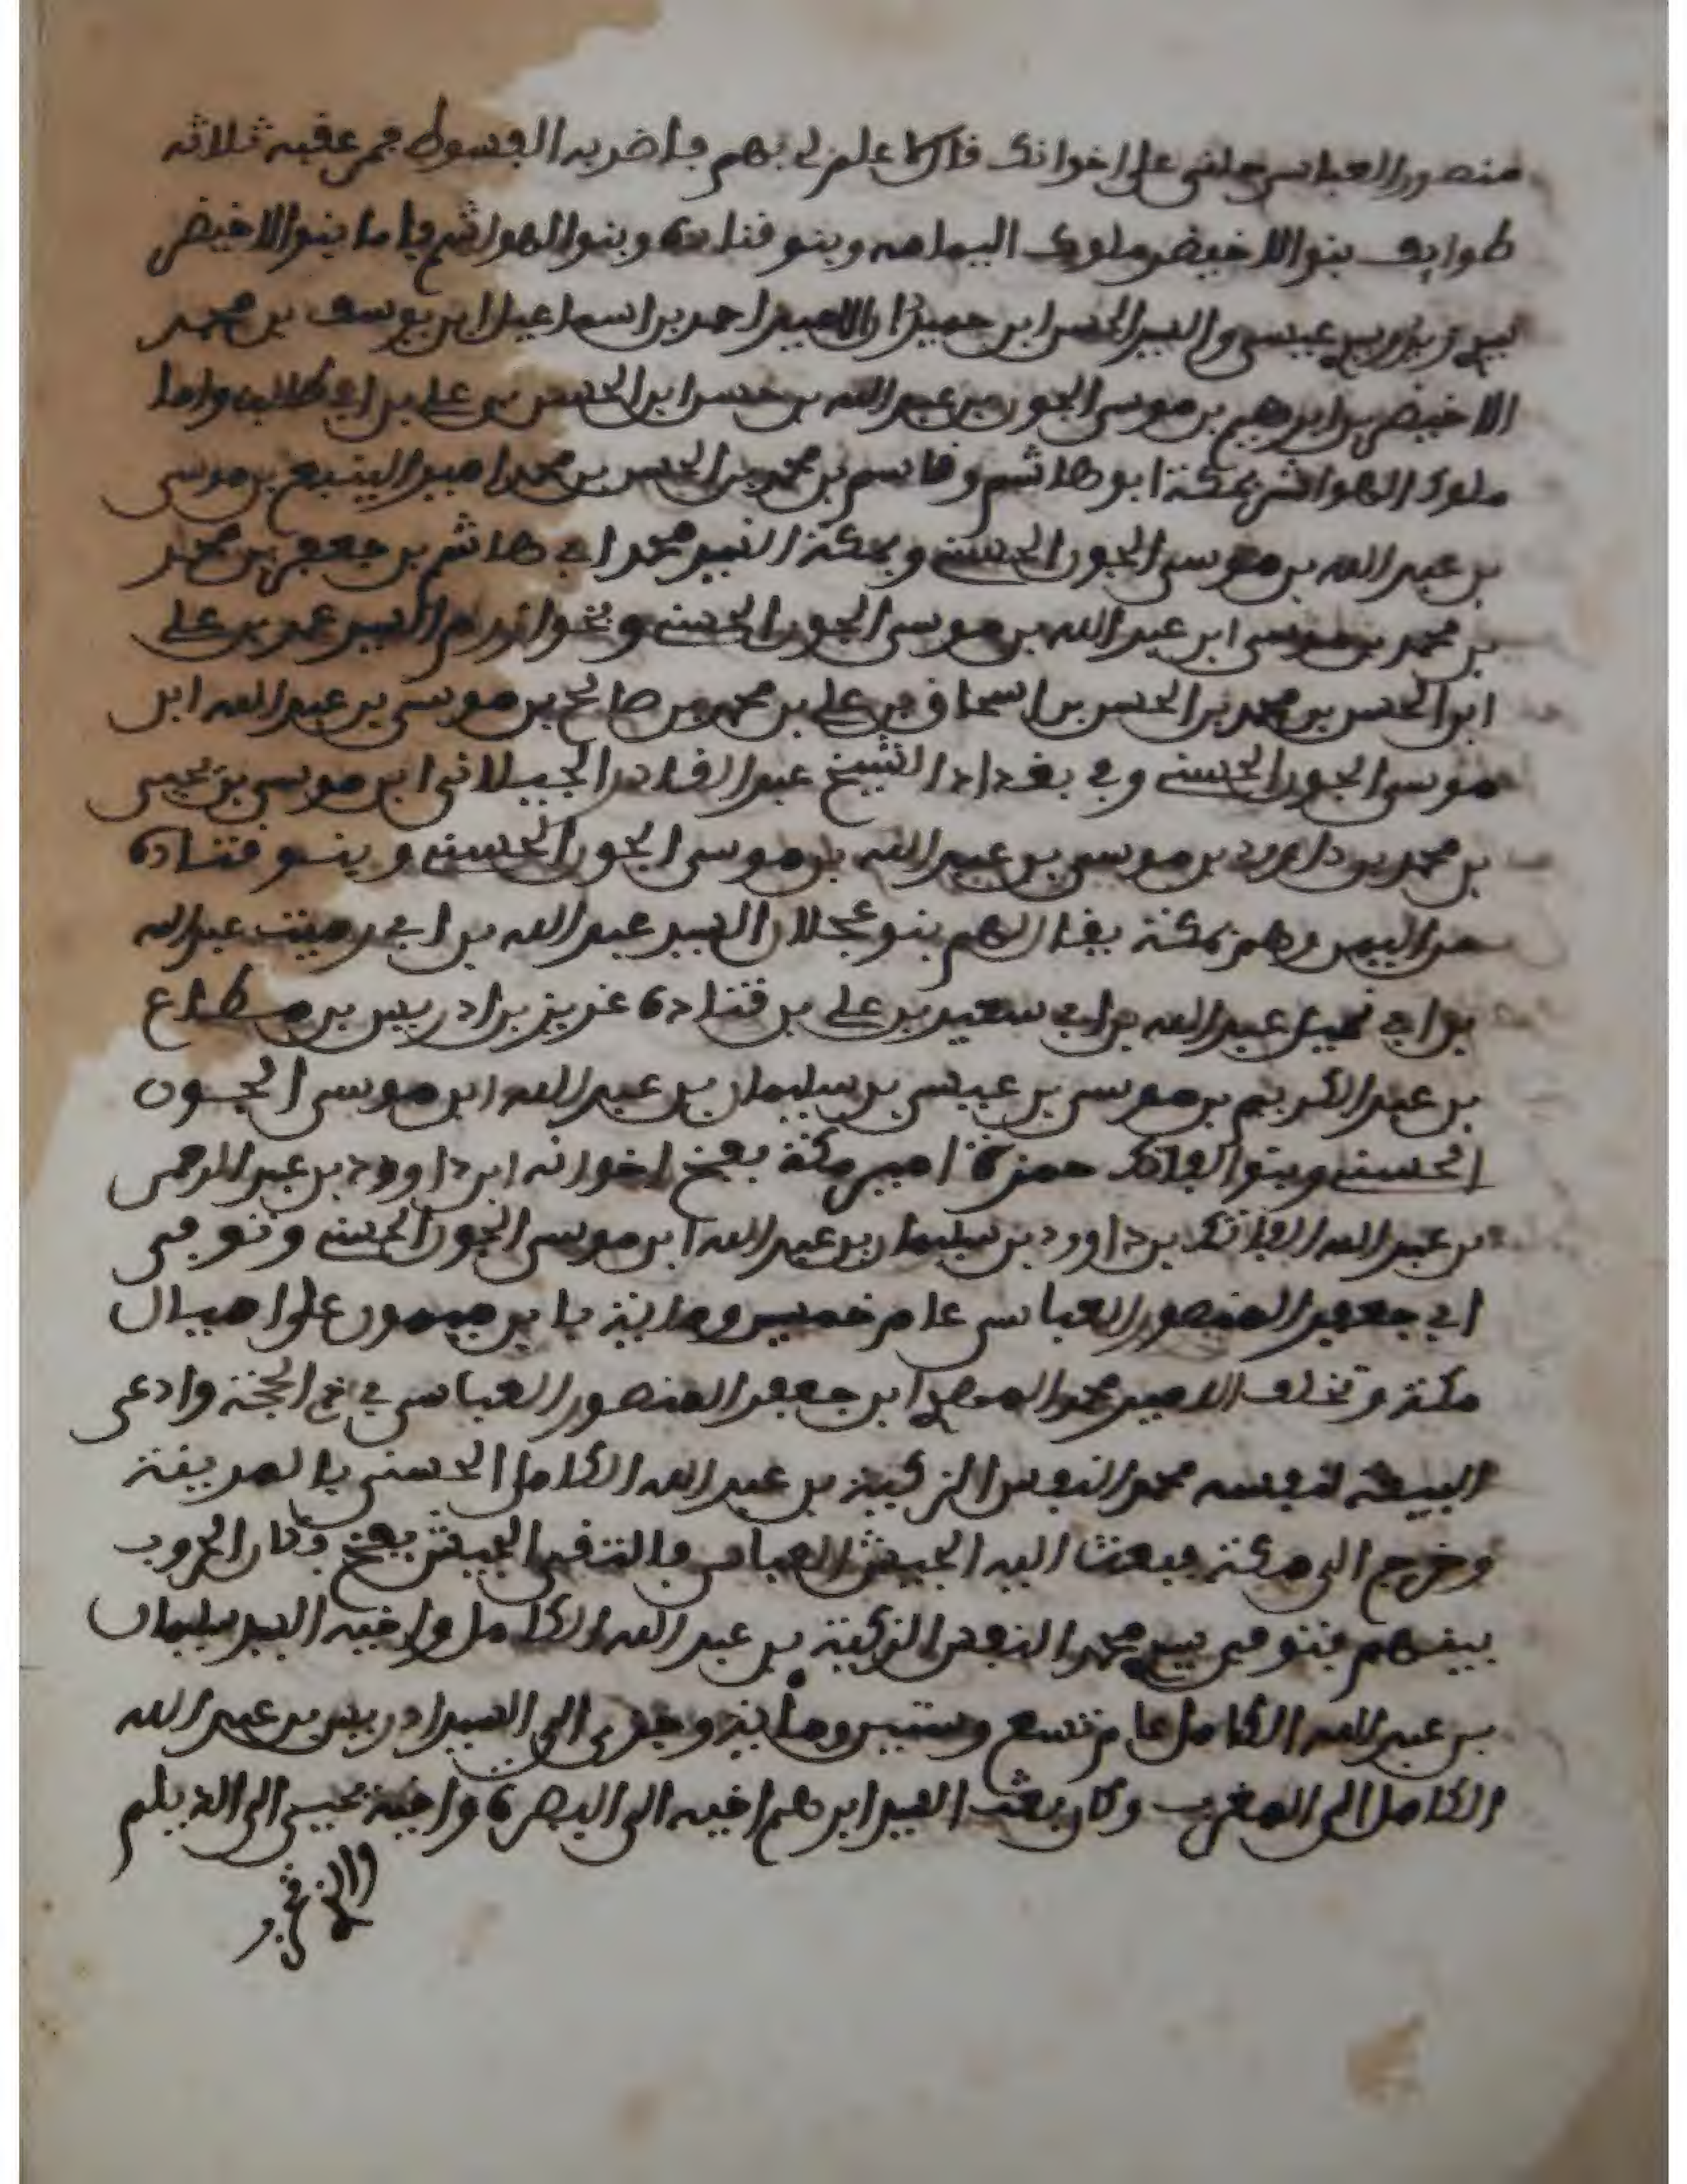 منصور العباسي على اخوانك قال لا علم لي بهم فاضربه السوط فمر عقبه ثلاثه
طوايف بنو الاخيضر ملوك اليمامه وبنو قتادة وبنو الهواشم فاما بنوا الاخيضر
عيسى والسيد الحسن ابن الامير احمد بن اسماعيل ابن يوسف بن محمد
الاخيضر بن ابرهيم بن موسى الجون بن عبد الله بن حسن ابن الحسن بن علي بن ابي طالب واما
ملوك الهواشم بمكة ابو هاشم وقاسم بن محمد بن الحسن بن محمد امير الينبع بن موسى
بن عبد الله بن موسى الجون الحسني وبمكة السيد محمد ابي هاشم بن جعفر بن محمد
بن محمد بن موسى ابن عبد الله بن موسى الجون الحسني وبخوارزم السيد عمر بن علي
ابوا الحسن بن محمد بن الحسن بن اسحاق بن علي بن محمد بن صالح بن موسى بن عبد الله ابن
موسى الجون الحسني وفي بغداد الشيخ عبد القادر الجيلاني ابن موسى بن يحيى
بن محمد بن داوود بن موسى بن عبد الله بن موسى الجون الحسني وبنو قتادة
وهم بمكة يقال لهم بنو عجلان السيد عبد الله بن ابي رميث عبد الله
بن ابي نمي عبد الله بن ابي سعيد بن علي بن قتادة عزيز بن ادريس بن مطاع
بن عبد الكريم بن موسى بن عيسى بن سليمان بن عبد الله ابن موسى الجون
الحسني وبنو الفاتك حمزة امير مكة بفخ اخوانه ابن داوود بن عبد الرحمن
بن عبد الله الفاتك بن داوود بن سليمان بن عبد الله ابن موسى الجون الحسني وتوفى
ابي جعفر المنصور العباسى عام خمسين ومائة بابن ميمون على اميال
مكة وتخلف الامير محمد المهدي ابن جعفر المنصور العباسى في الحجة وادعى
البيعة لنفسه محمد النفس الزكية بن عبد الله الكامل الحسنى بالمدينة
وخرج الى مكة فبعث اليه الجيش العباسى فالتقى الجيش بفخ وكان الحروب
بينهم فتوفى محمد النفس الزكية بن عبد الله الكامل واخيه السيد سليمان
بن عبد الله الكامل عام تسع وستين ومائة وجرى الى السيد ادريس بن عبد الله
الكامل الى المغرب وكان بعث السيد ابرهم اخيه الى البصرة واخيه يحيى الى الديلم